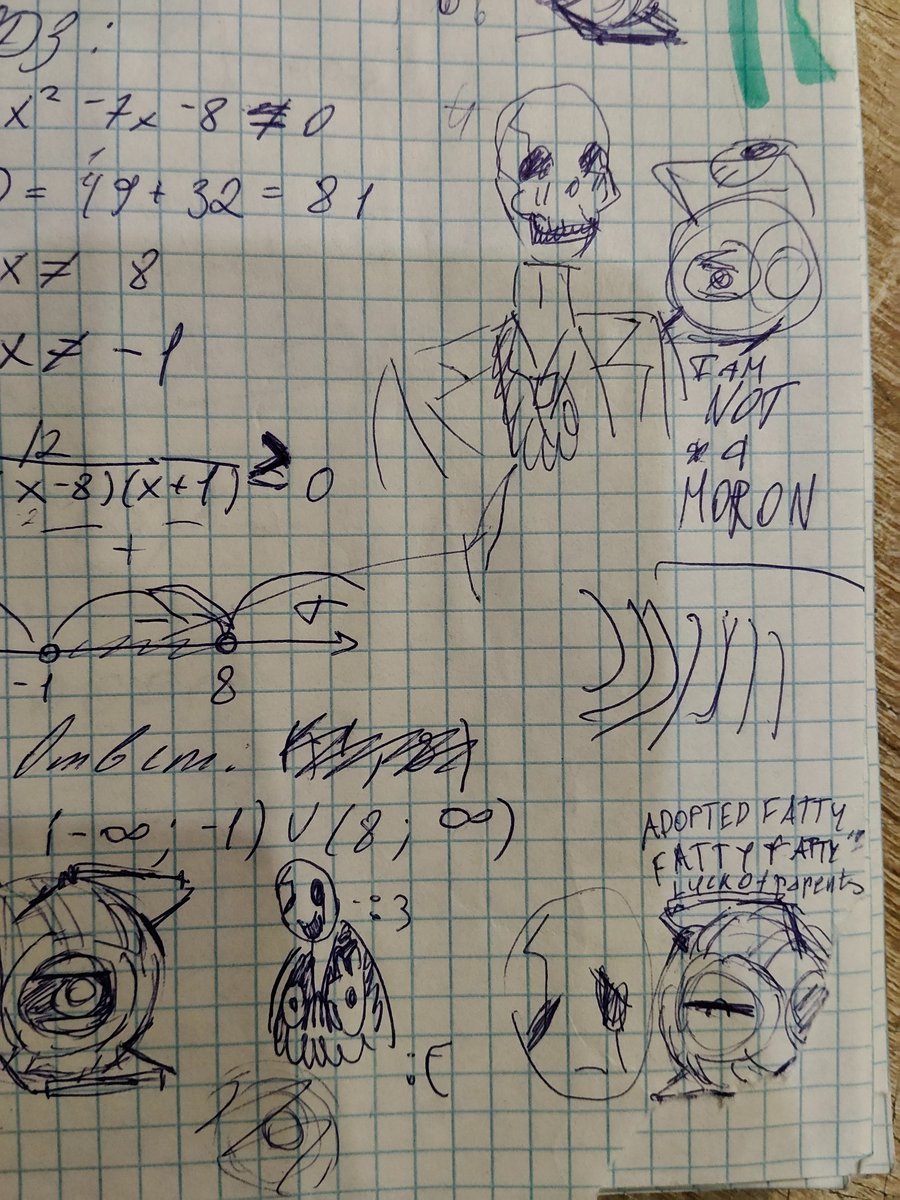 ДЗ:
x² - 7x - 8 ≠ 0
D = 49 + 32 = 81
x ≠ 8
x ≠ -1
12
x-8)(x+1) ≥ 0
+
+
-1 8
Ответ.
(-∞; -1) ∪ (8; ∞)
I AM
NOT
a
MORON
ADOPTED FATTY
FATTY FATTY
parents
-:3
:E